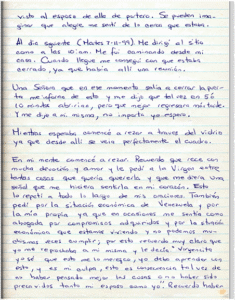 visto al esposo de ella de portero. Se pueden ima
ginar que alegre me sentí de la cena que estaba.
Al día siguiente (Martes 7-12-99) Me dirigí al sitio
como a las 10:00am. Me fui caminando desde mi
casa. Cuando llegué me conseguí con que estaba
cerrado, ya que había allí una reunión.
Una Señora que en ese momento salía a cerrar la puer
ta, me informa de esto y me dijo que tal vez en 5 ó
10 minutos abrirían, pero que mejor regresara más tarde.
Y me dije a mi misma, no importa yo espero.
Mientras esperaba comencé a rezar a través del vidrio
ya que desde allí se veía perfectamente el cuadro.
En mi mente comencé a rezar. Recuerdo que recé con
mucha devoción y amor y le pedí a la Virgen entre
tantas cosas que quería quererla y que me diera una
señal que me hiciera sentirla en mi corazón. Esto
lo repetí a todo lo largo de mis oraciones. También
pedí por la situación económica de Venezuela y por
la mía propia ya que en ocasiones me sentía como
ahogada por compromisos adquiridos y por la situación
económica que estamos viviendo y no podemos mos
trarnos a veces
que esto me lo merezco, yo debo aprender con
esto, y es mi culpa, esto es consecuencia tal vez de
no haber pensado mejor las cosas o no haber sido
tanto mi esposo como yo" Recuerdo haber